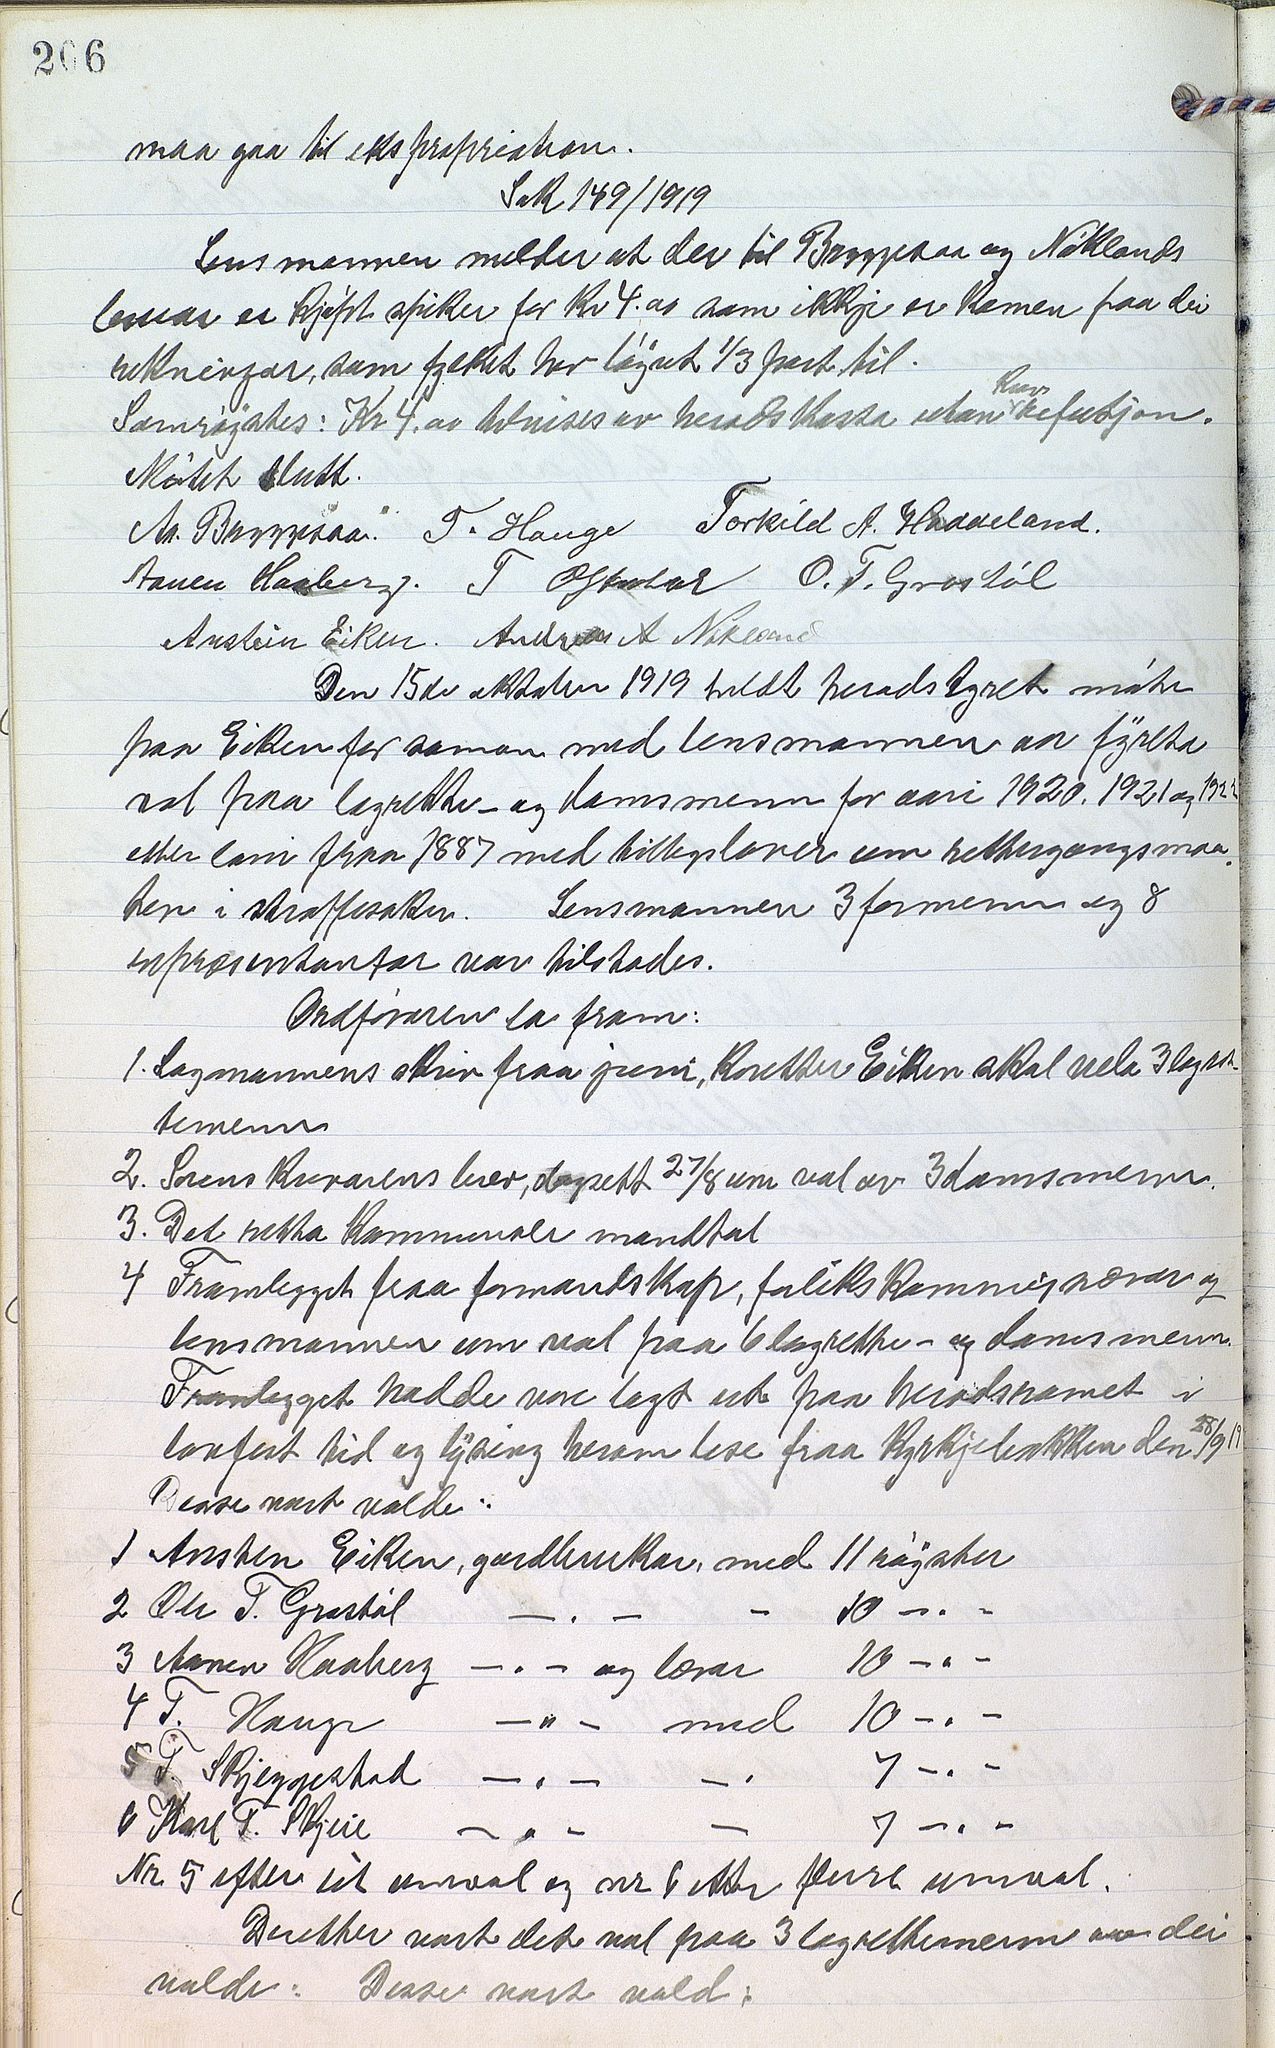 206
maa gaa til ekspropriation.
Sak 149/1919
Lensmannen melder at der til Bryggesaa og Nöklands
er kjöpt spiker for Kr 4.00 som ikkje er komen paa dei
rekningar, som fylket har lögvet 1/3 part til.
Samröystes: Kr 4.00 utvises av heradskassa utan krav refusjon.
Mötet slutt.
Aa. Bryggesaa. T. Hauge Torkild A. Haddeland.
Aanen Haaberg. T O. T. Grastöl
Austein Eiken. Andreas A Nökland
Den 15de oktober 1919 heldt heradstyret möte
paa Eiken for saman med lensmannen aa fyreta
val paa lagrette- og domsmenn for aari 1920, 1921 og 1922
etter lovi fraa 1887 med tilleggslover um rettergangsmaa-
ten i straffesaker. Lensmannen 3 formenn og 8
representantar var tilstades.
Ordföraren la fram:
1. Lagmannens skriv fraa juni, koretter Eiken skal velа 3 lagret-
temenn
2. Sorenskrivarens brev, dagsett 27/8 um val av 3 domsmenn.
3. Det retta kommunale mandtal
4 Framlegget fraa formandskap, forlikskommisærar og
lensmannen um val paa 6 lagrette- og domsmenn.
Framlegget hadde vore lagt ut paa heradsromet i
lovfest tid og lysing herom lese fraa kyrkjebakken den 28/9 19
Desse vart valde:
1 Austen Eiken, gardbrukar, med 11 röyster
2 Ole T. Grastöl — . — - 10 — . -
3 Aanen Haaberg — . — og lærar 10 — . -
4 T. Hauge — " - med 10 — . -
5 T. Skjeggestad — . — — . 7 — . -
6 Karl T. Skjeie — . - — 7 — . -
Nr. 5 efter eit umval og nr 6 etter fleire umval.
Deretter vart det val paa 3 lagrettemenn av dei
valde: Desse vart vald: